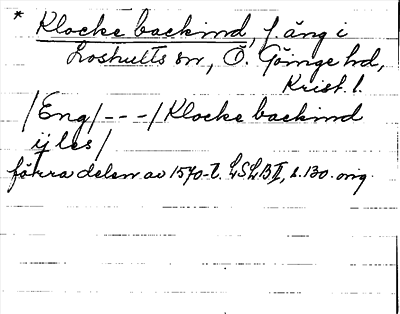 * Klocke backind, f. äng i
Loshults sn, Ö. Göinge hd,
Krist. l.
/Eng/ - - - / Klocke backind
ij les /
förra delen av 1570-t. LSLB II, s. 130. orig.